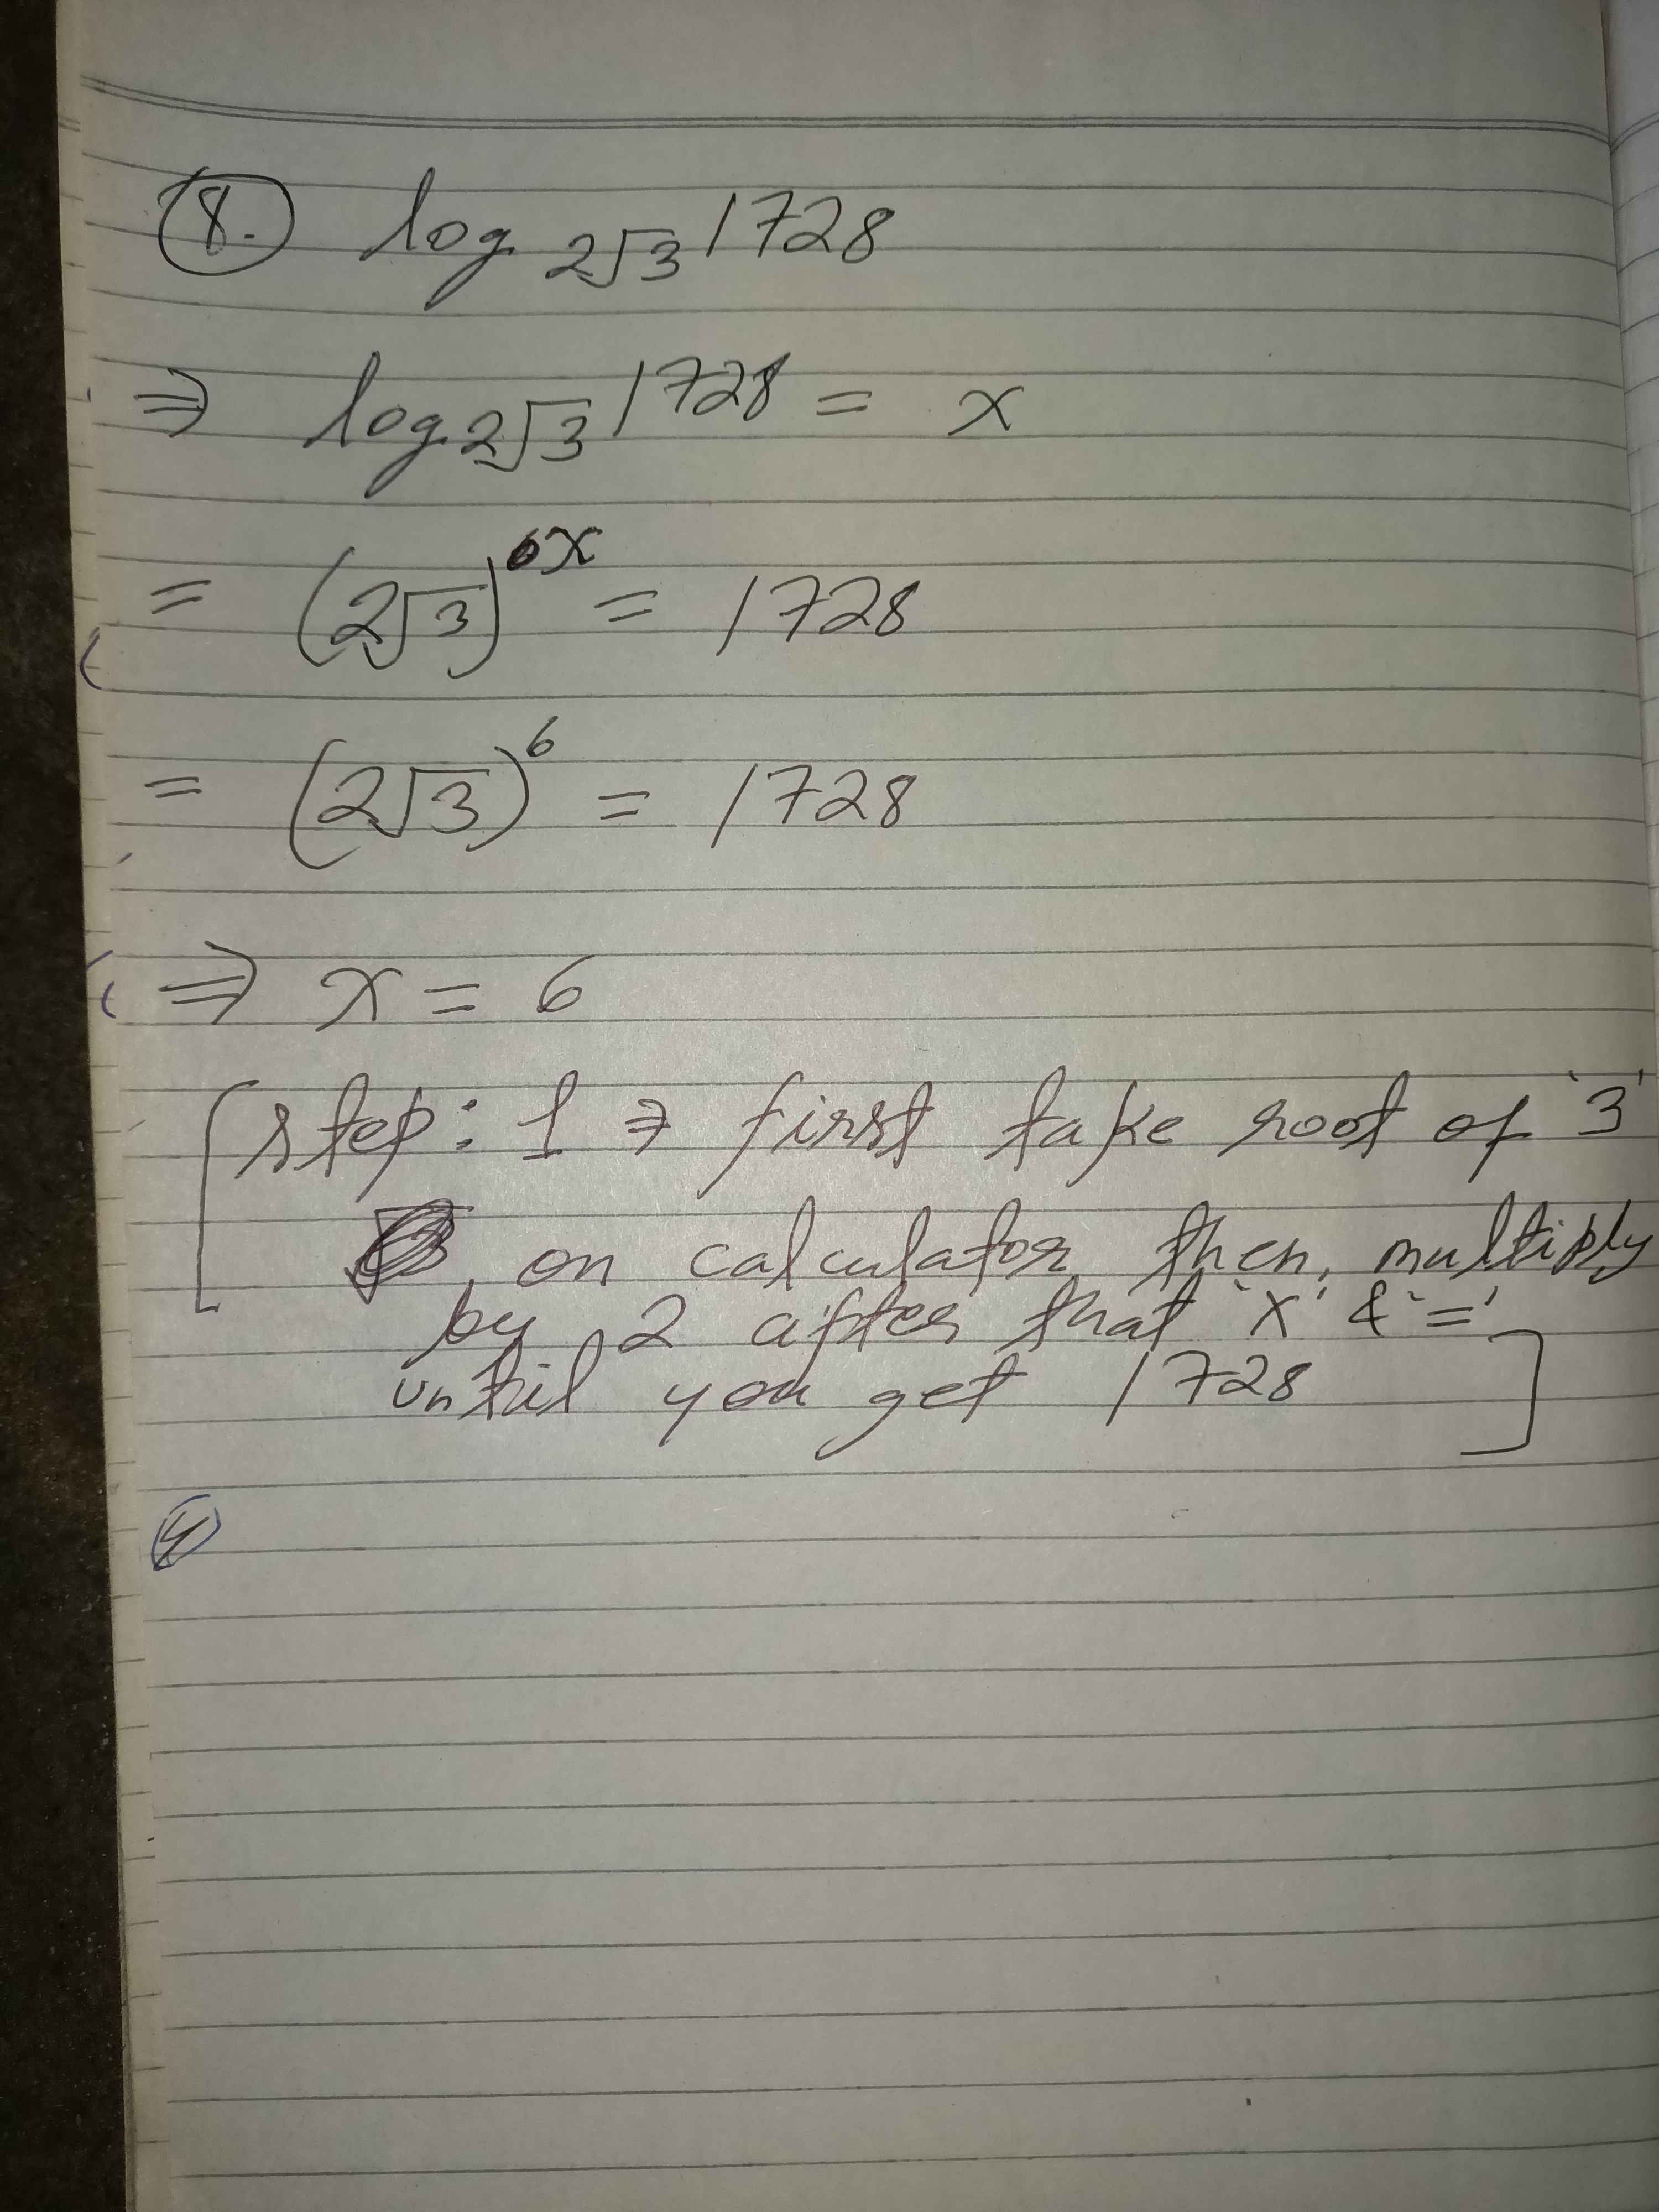 8. log 2√3 1728
⇒ log 2√3 1728 = x
= (2√3)^6x = 1728
= (2√3)^6 = 1728
⇒ x = 6
[step: 1 ⇒ first take root of '3'
, on calculator then, multiply
by 2 after that 'x' & '='
until you get 1728]